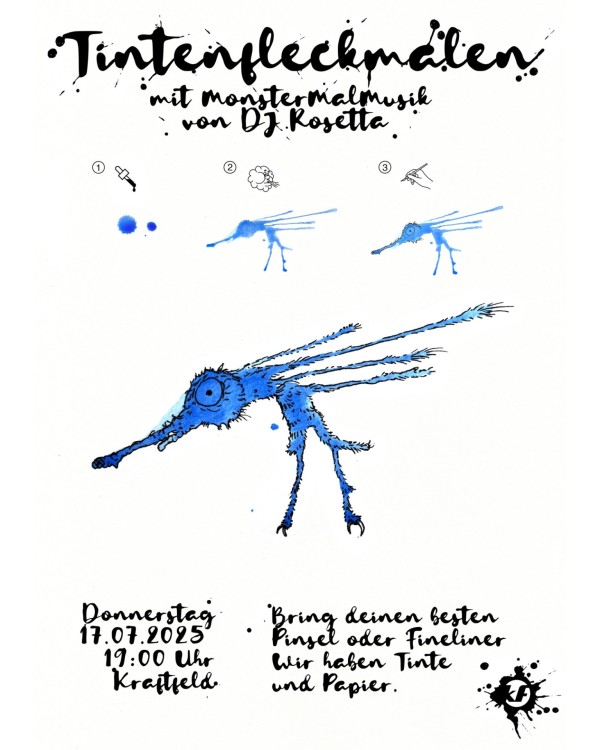 Tintenfleckmalen
mit MonsterMalMusik
von DJ Rosetta
1
2
3
Donnerstag
17.07.2025
19:00 Uhr
Kraftfeld
Bring deinen besten
Pinsel oder Fineliner
Wir haben Tinte
und Papier.
KF